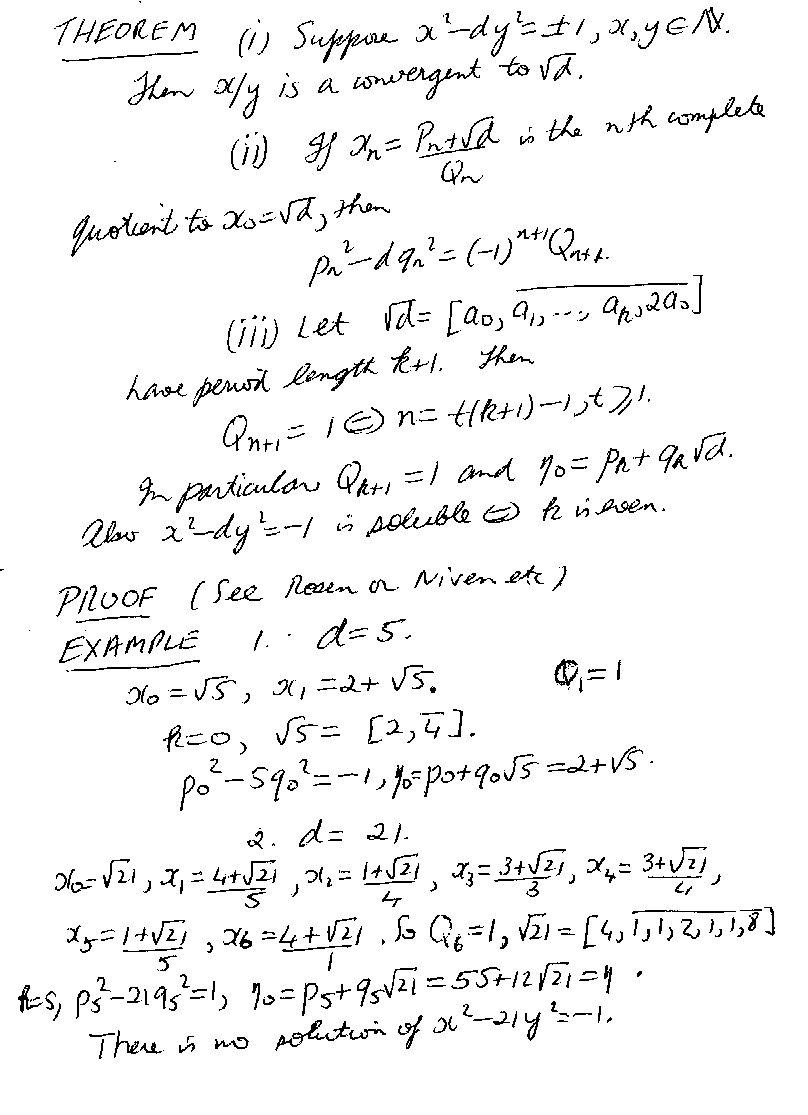 THEOREM (i) Suppose x²-dy²=±1, x,y∈ℕ.
Then x/y is a convergent to √d.
(ii) If xₙ = (Pₙ+√d)/Qₙ is the nth complete
quotient to x₀=√d, then
pₙ²-dqₙ²=(-1)ⁿ⁺¹Qₙ₊₁.
(iii) Let √d= [a₀, \overline{a₁, ..., aₖ, 2a₀}]
have period length k+1. Then
Qₙ₊₁ = 1 ⇔ n= t(k+1)-1, t⩾1.
In particular Qₖ₊₁=1 and η₀= pₖ+qₖ√d.
Also x²-dy²=-1 is soluble ⇔ k is even.
PROOF (See Rosen or Niven etc)
EXAMPLE 1. d=5.
x₀=√5, x₁=2+√5. Q₁=1
k=0, √5= [2,\overline{4}].
p₀²-5q₀²=-1, η₀=p₀+q₀√5=2+√5.
2. d= 21.
x₀=√21, x₁=(4+√21)/5, x₂=(1+√21)/4, x₃=(3+√21)/3, x₄=(3+√21)/4,
x₅=(1+√21)/5, x₆=(4+√21)/1. So Q₆=1, √21=[4,\overline{1,1,2,1,1,8}]
k=5, p₅²-21q₅²=1, η₀=p₅+q₅√21=55+12√21=η.
There is no solution of x²-21y²=-1.